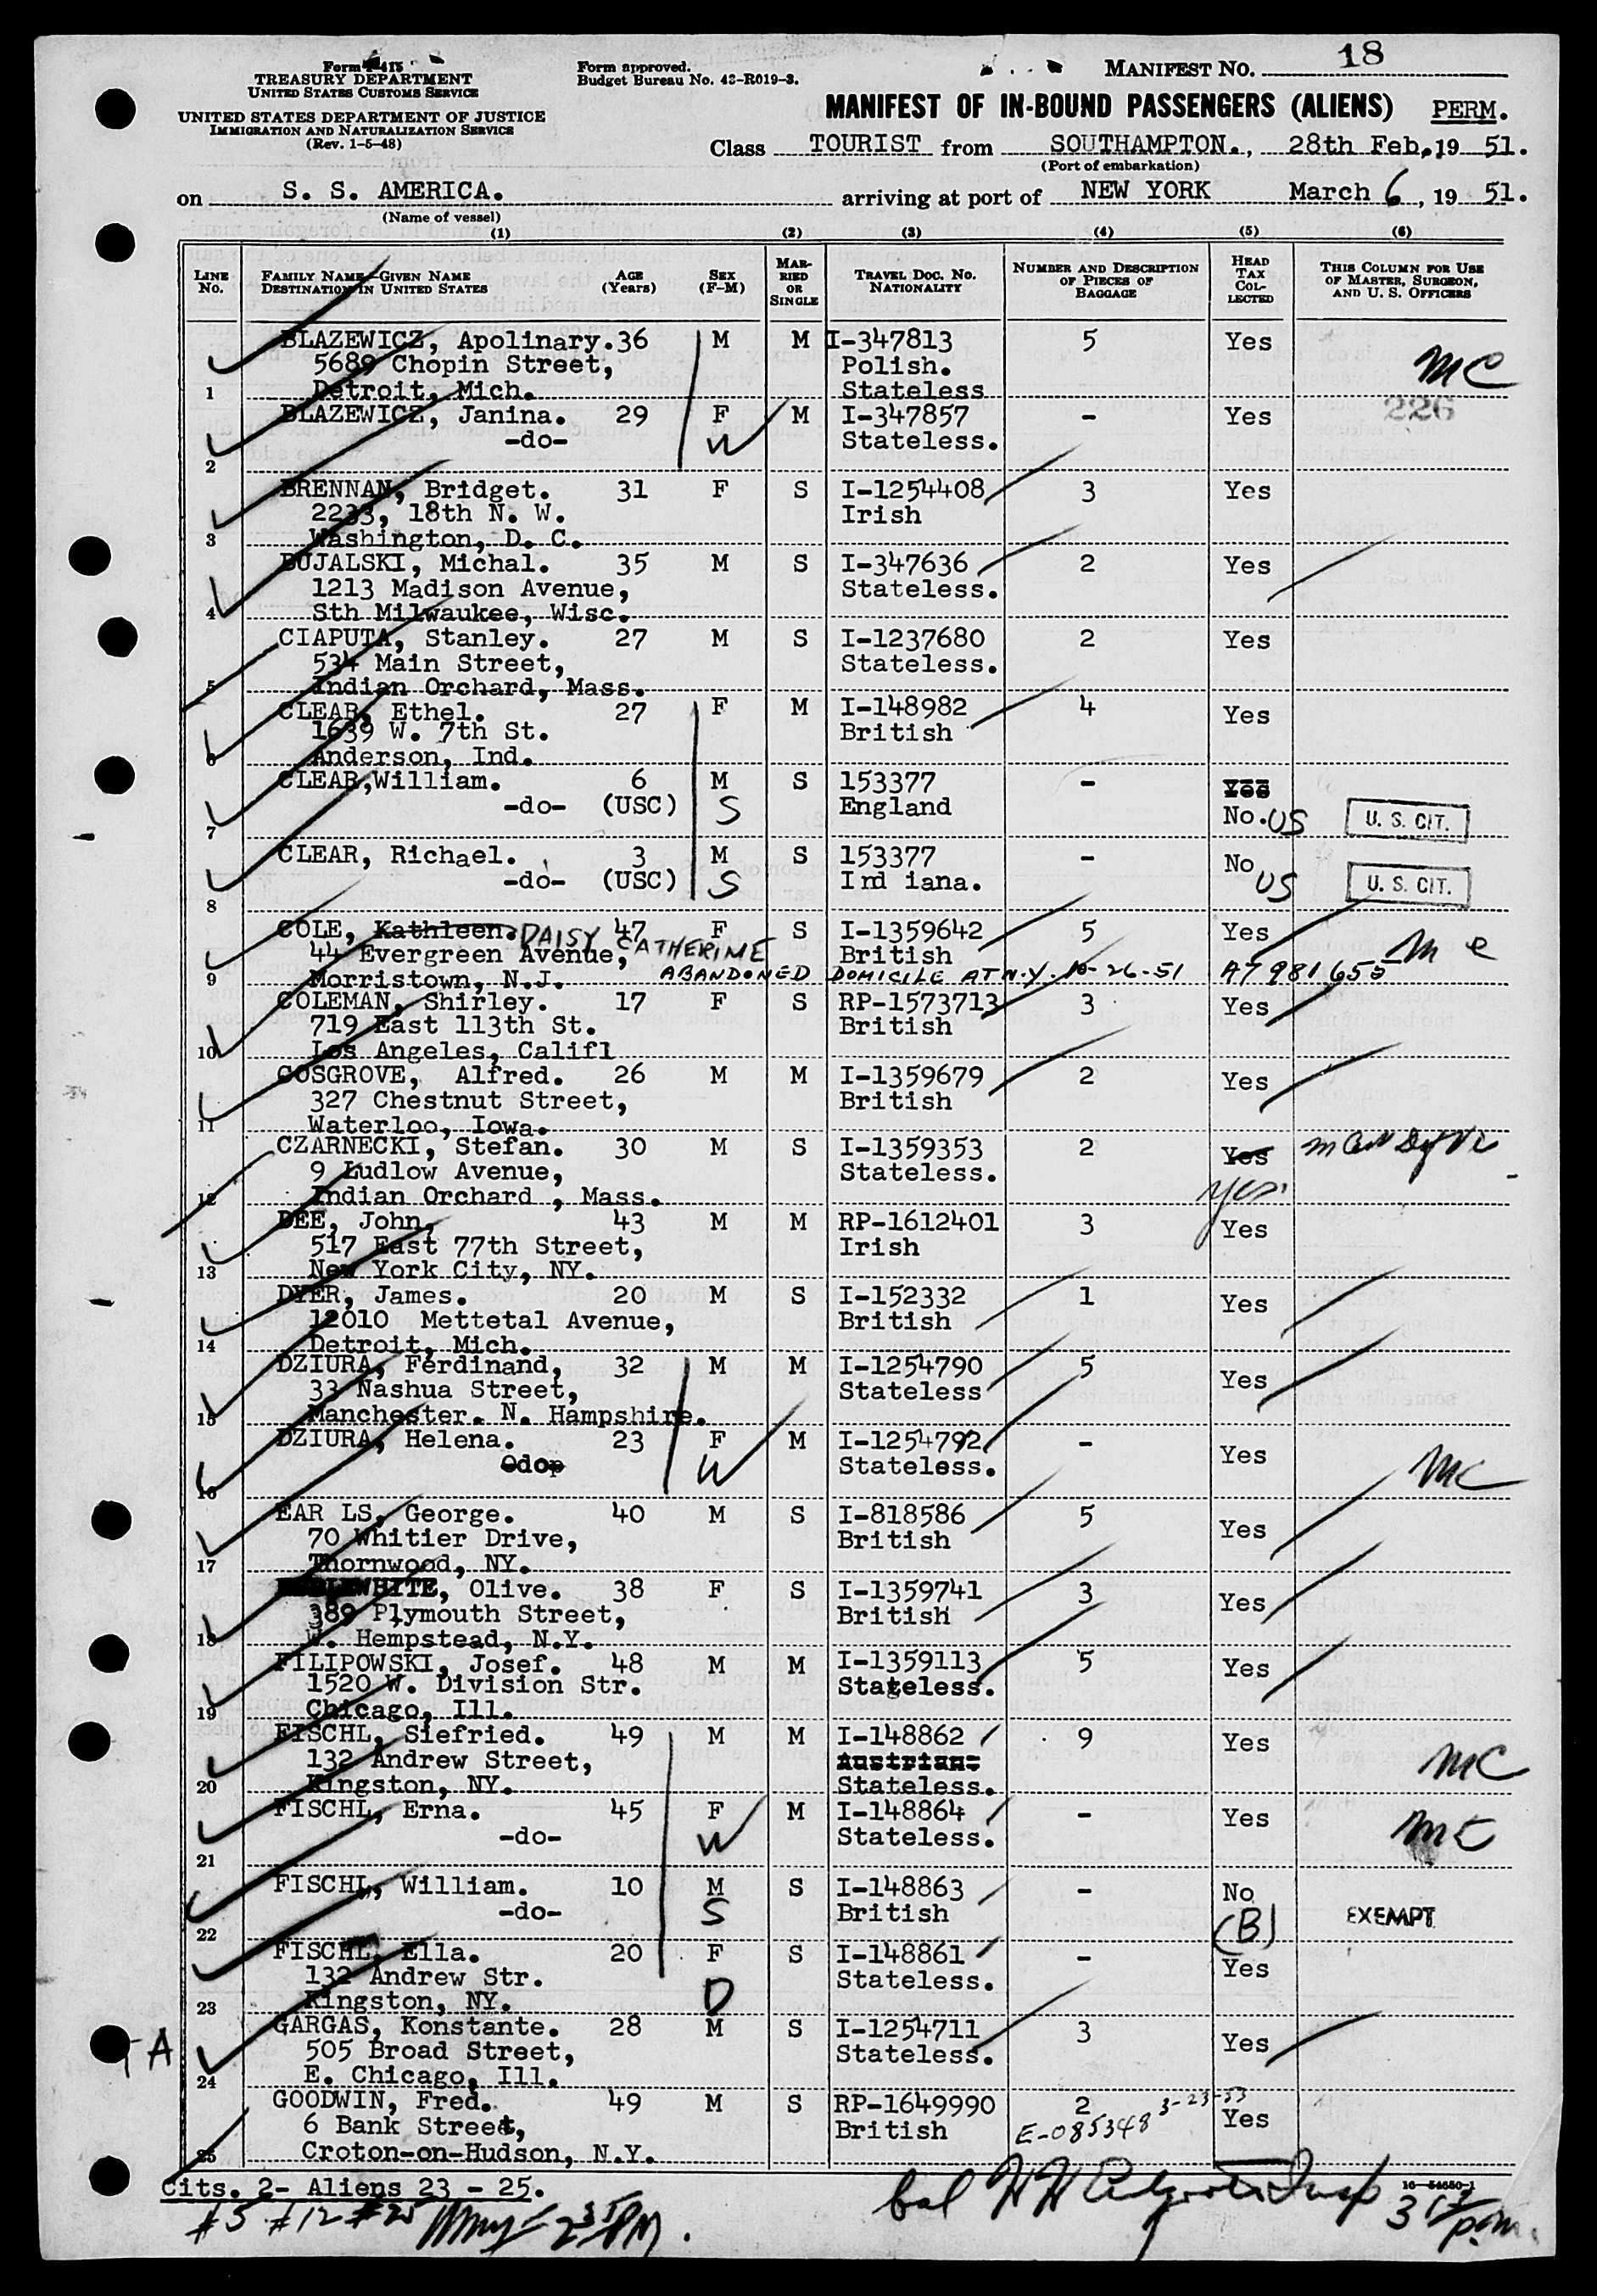 Form 415
TREASURY DEPARTMENT
UNITED STATES CUSTOMS SERVICE
UNITED STATES DEPARTMENT OF JUSTICE
IMMIGRATION AND NATURALIZATION SERVICE
(Rev. 1-5-48)
Form approved.
Budget Bureau No. 43-R019-3.
MANIFEST NO. 18
MANIFEST OF IN-BOUND PASSENGERS (ALIENS) PERM.
Class TOURIST from SOUTHAMPTON., 28th Feb, 19 51.
(Port of embarkation)
on S. S. AMERICA. arriving at port of NEW YORK March 6, 19 51.
(Name of vessel)
(1) (2) (3) (4) (5) (6)
LINE NO. FAMILY NAME—GIVEN NAME DESTINATION IN UNITED STATES AGE (Years) SEX (F-M) MARRIED OR SINGLE TRAVEL DOC. NO. NATIONALITY NUMBER AND DESCRIPTION OF PIECES OF BAGGAGE HEAD TAX COLLECTED THIS COLUMN FOR USE OF MASTER, SURGEON, AND U. S. OFFICERS
BLAZEWICZ, Apolinary. 36 M M I-347813 5 Yes
5689 Chopin Street, Polish. MC
1 Detroit, Mich. Stateless
BLAZEWICZ, Janina. 29 F M I-347857 - Yes 226
-do- W Stateless.
2
BRENNAN, Bridget. 31 F S I-1254408 3 Yes
2233, 18th N. W. Irish
3 Washington, D. C.
BUJALSKI, Michal. 35 M S I-347636 2 Yes
1213 Madison Avenue, Stateless.
4 Sth Milwaukee, Wisc.
CIAPUTA, Stanley. 27 M S I-1237680 2 Yes
534 Main Street, Stateless.
5 Indian Orchard, Mass.
CLEAR, Ethel. 27 F M I-148982 4 Yes
1639 W. 7th St. British
6 Anderson, Ind.
CLEAR,William. 6 M S 153377 - Yes
-do- (USC) S England No. US U. S. CIT.
7
CLEAR, Richael. 3 M S 153377 - No
-do- (USC) S Ind iana. US U. S. CIT.
8
COLE, Kathleen. DAISY CATHERINE 47 F S I-1359642 5 Yes
44 Evergreen Avenue, British
9 Morristown, N.J. ABANDONED DOMICILE AT N.Y. 10-26-51 A7 981 655
COLEMAN, Shirley. 17 F S RP-1573713 3 Yes
719 East 113th St. British
10 Los Angeles, Califl
COSGROVE, Alfred. 26 M M I-1359679 2 Yes
327 Chestnut Street, British
11 Waterloo, Iowa.
CZARNECKI, Stefan. 30 M S I-1359353 2 Yes
9 Ludlow Avenue, Stateless.
12 Indian Orchard , Mass. yes.
DEE, John, 43 M M RP-1612401 3 Yes
517 East 77th Street, Irish
13 New York City, NY.
DYER, James. 20 M S I-152332 1 Yes
12010 Mettetal Avenue, British
14 Detroit, Mich.
DZIURA, Ferdinand, 32 M M I-1254790 5 Yes
33 Nashua Street, Stateless
15 Manchester. N. Hampshire.
DZIURA, Helena. 23 F M I-1254792 - Yes
-do- W Stateless. MC
16
EAR LS, George. 40 M S I-818586 5 Yes
70 Whitier Drive, British
17 Thornwood, NY.
WHITE, Olive. 38 F S I-1359741 3 Yes
389 Plymouth Street, British
18 W. Hempstead, N.Y.
FILIPOWSKI, Josef. 48 M M I-1359113 5 Yes
1520 W. Division Str. Stateless.
19 Chicago, Ill.
FISCHL, Siefried. 49 M M I-148862 9 Yes
132 Andrew Street, Austrian. MC
20 Kingston, NY. Stateless.
FISCHL, Erna. 45 F M I-148864 - Yes
-do- W Stateless. MC
21
FISCHL, William. 10 M S I-148863 - No
-do- S British (B) EXEMPT
22
FISCHL, Ella. 20 F S I-148861 - Yes
132 Andrew Str. Stateless.
23 Kingston, NY. D
GARGAS, Konstante. 28 M S I-1254711 3 Yes
TA 505 Broad Street, Stateless.
24 E. Chicago, Ill.
GOODWIN, Fred. 49 M S RP-1649990 2 3-23-53 Yes
6 Bank Street, British E-085348
25 Croton-on-Hudson, N.Y.
Cits. 2- Aliens 23 - 25. 16—54650-1
#5 #12 #25 2 35 PM. bal 3 15 p.m.